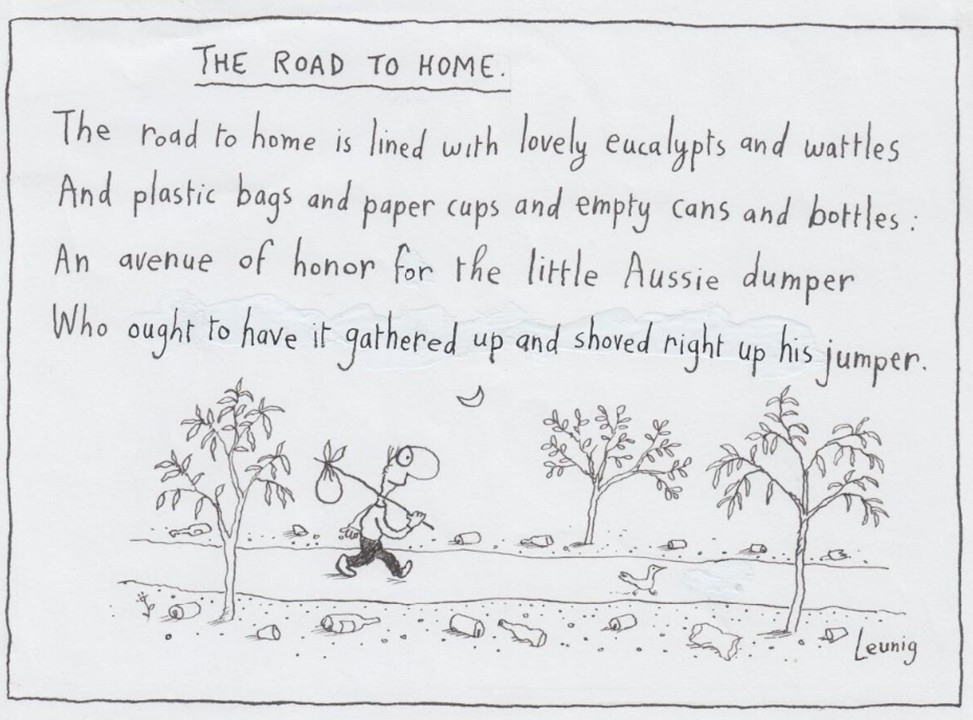 THE ROAD TO HOME.
The road to home is lined with lovely eucalypts and wattles
And plastic bags and paper cups and empty cans and bottles :
An avenue of honor for the little Aussie dumper
Who ought to have it gathered up and shoved right up his jumper.
Leunig